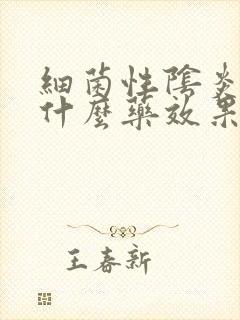 細菌性陰炎
什麼藥效果
王春新